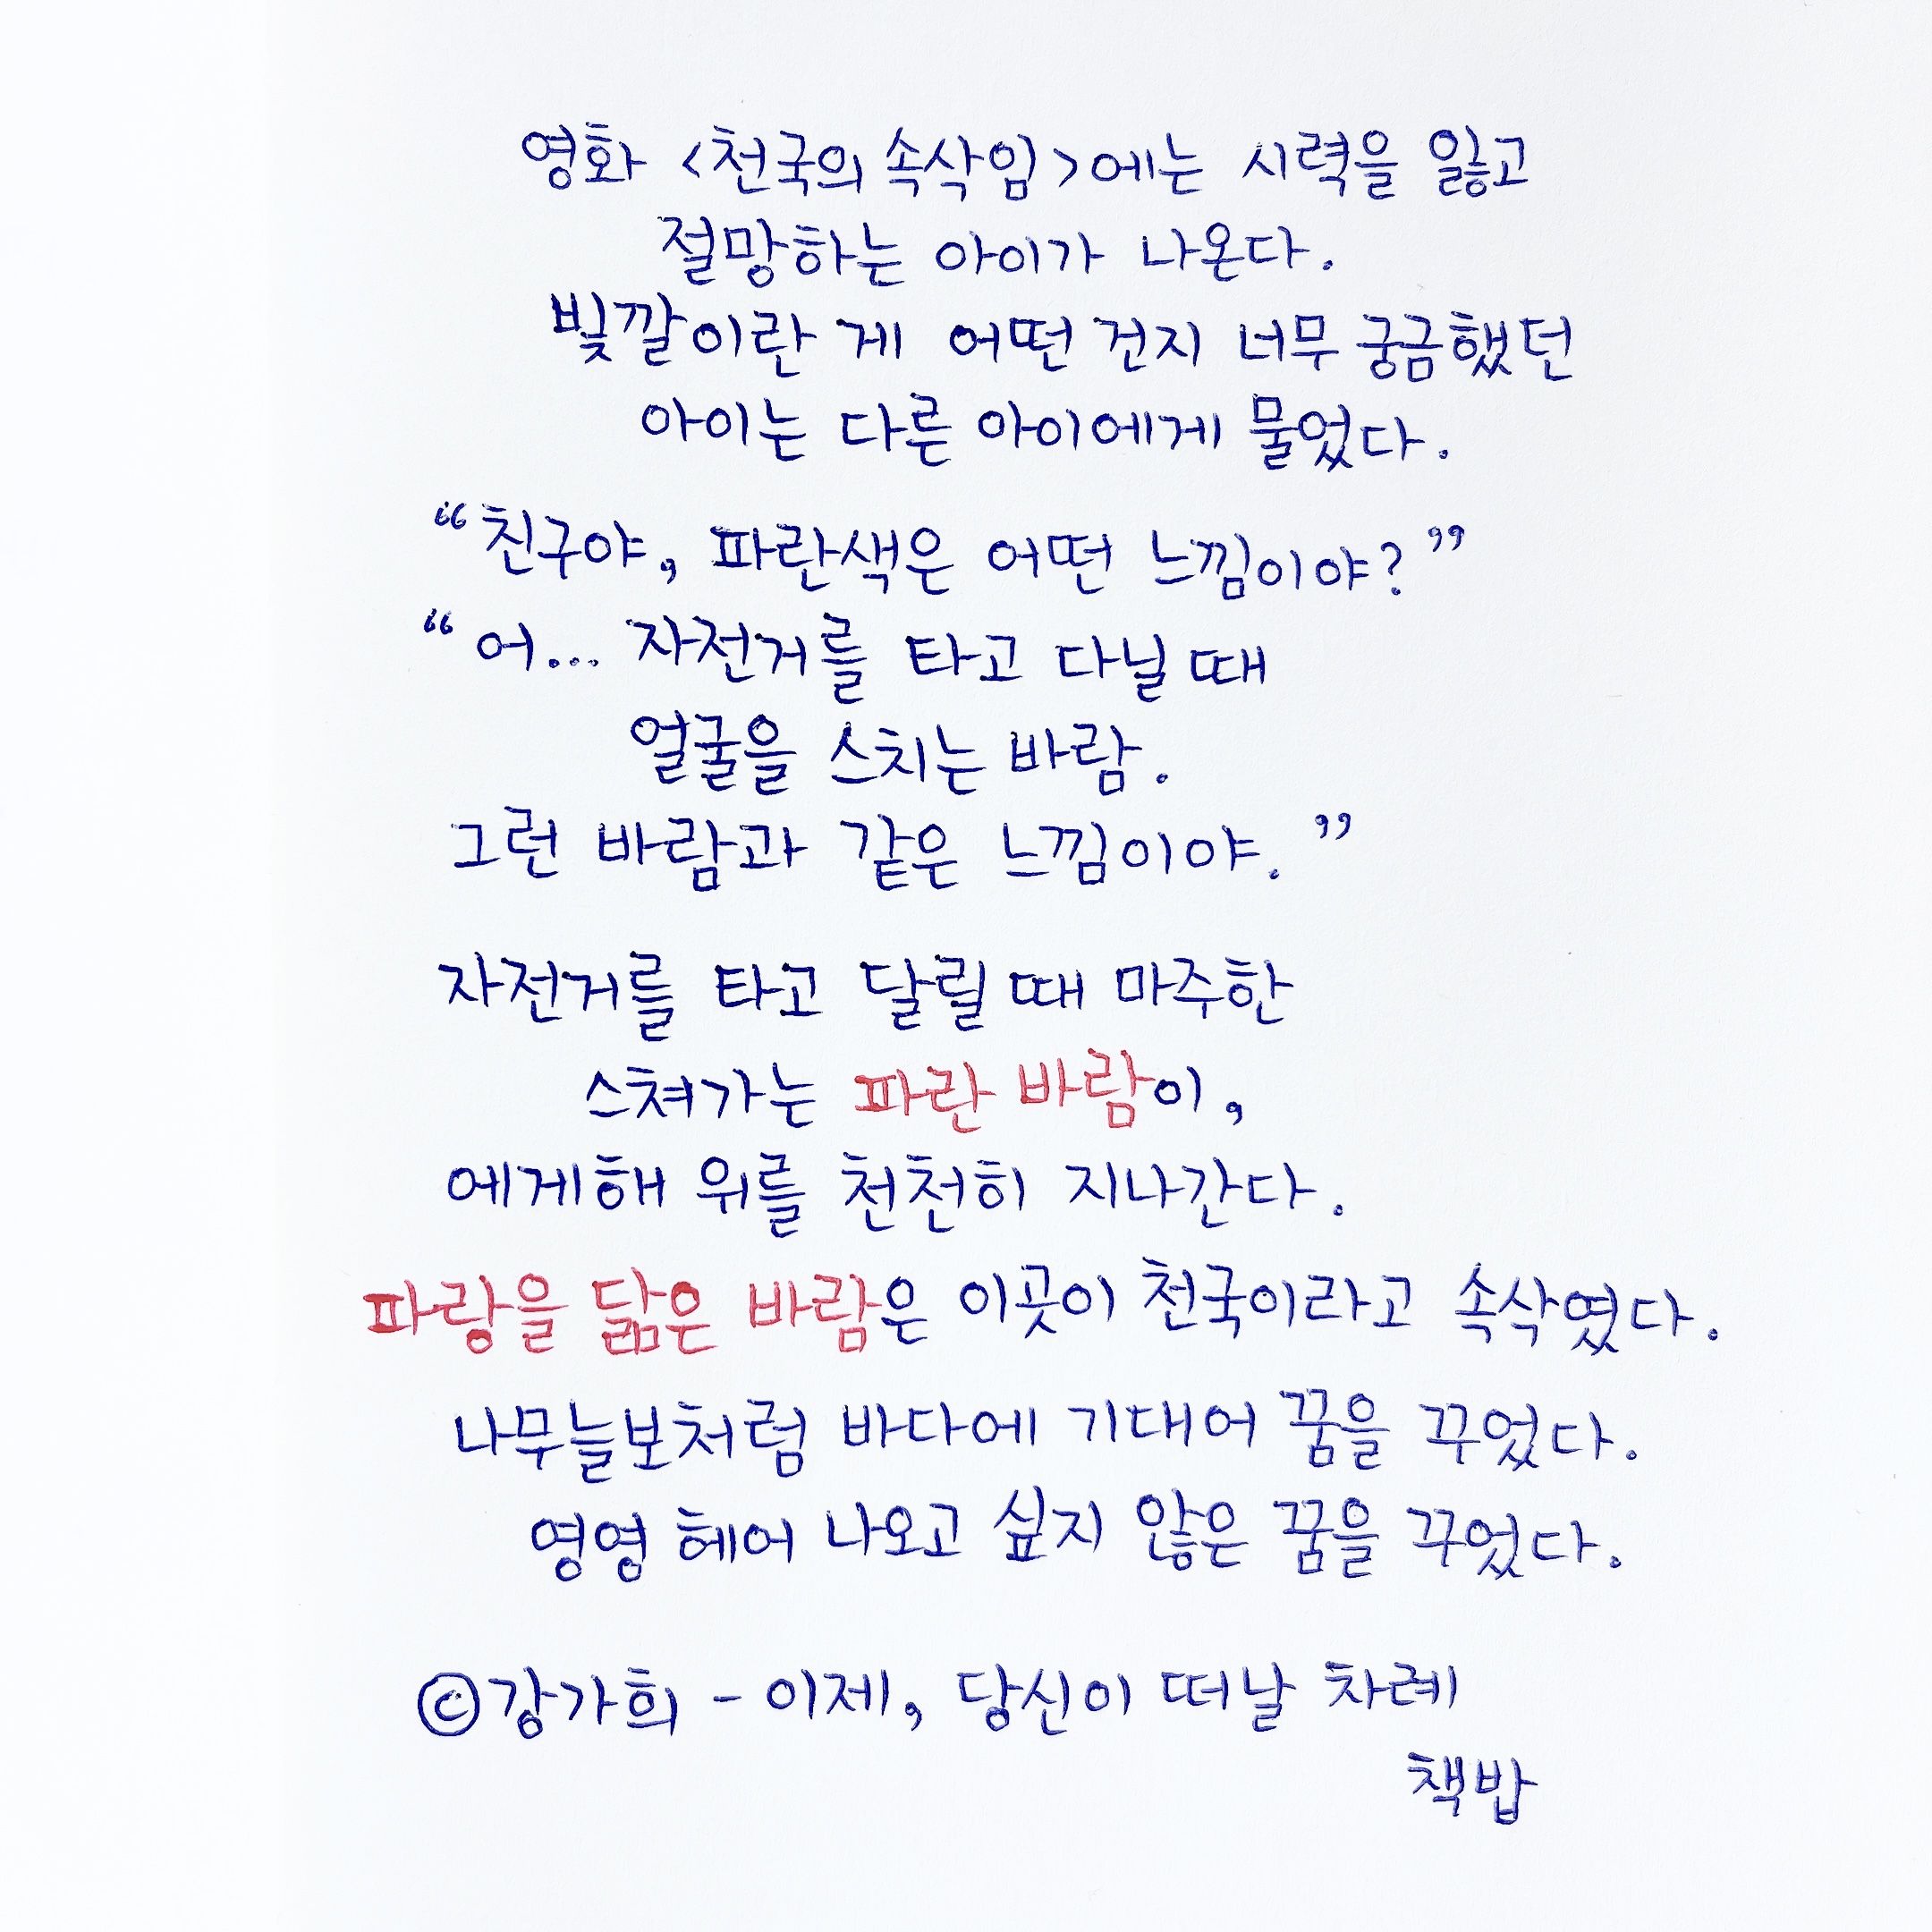 영화 <천국의 속삭임>에는 시력을 잃고
절망하는 아이가 나온다.
빛깔이란 게 어떤 건지 너무 궁금했던
아이는 다른 아이에게 물었다.
“친구야, 파란색은 어떤 느낌이야?”
“어... 자전거를 타고 다닐 때
얼굴을 스치는 바람.
그런 바람과 같은 느낌이야.”
자전거를 타고 달릴 때 마주한
스쳐가는 파란 바람이,
에게해 위를 천천히 지나간다.
파랑을 닮은 바람은 이곳이 천국이라고 속삭였다.
나무늘보처럼 바다에 기대어 꿈을 꾸었다.
영영 헤어 나오고 싶지 않은 꿈을 꾸었다.
©강가희 - 이제, 당신이 떠날 차례
책밥